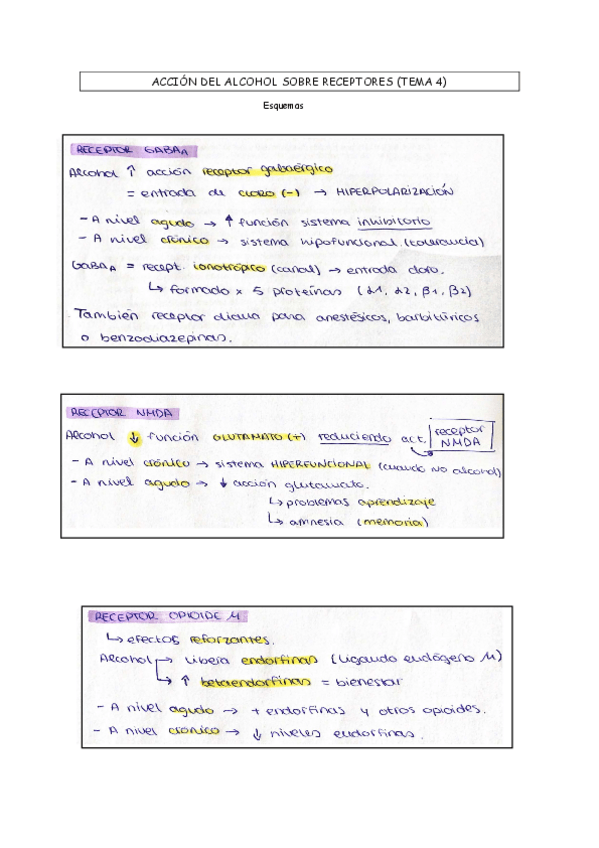 ACCIÓN DEL ALCOHOL SOBRE RECEPTORES (TEMA 4)
Esquemas
RECEPTOR GABA_A
Alcohol ↑ acción receptor gabaérgico
= entrada de cloro (-) → HIPERPOLARIZACIÓN
- A nivel agudo → ↑ función sistema inhibitorio
- A nivel crónico → sistema hipofuncional (tolerancia)
GABA_A = recept. ionotrópico (canal) → entrada cloro.
↳ formado x 5 proteínas (α1, α2, β1, β2)
También receptor diana para anestésicos, barbitúricos
o benzodiazepinas.
RECEPTOR NMDA
Alcohol ↓ función GLUTAMATO (+) reduciendo act. receptor NMDA
- A nivel crónico → sistema HIPERFUNCIONAL (cuando no alcohol)
- A nivel agudo → ↓ acción glutamato.
↳ problemas aprendizaje
↳ amnesia (memoria)
RECEPTOR OPIOIDE M
↳ efectos reforzantes.
Alcohol → libera endorfinas (ligando endógeno M)
↳ ↑ betaendorfinas = bienestar
- A nivel agudo → + endorfinas y otros opioides.
- A nivel crónico → ↓ niveles endorfinas.